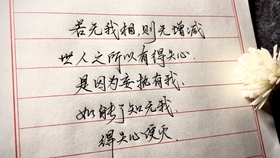 若无我相，则无增减
世人之所以有得失心，
是因为妄执有我，
如能了知无我
得失心便灭